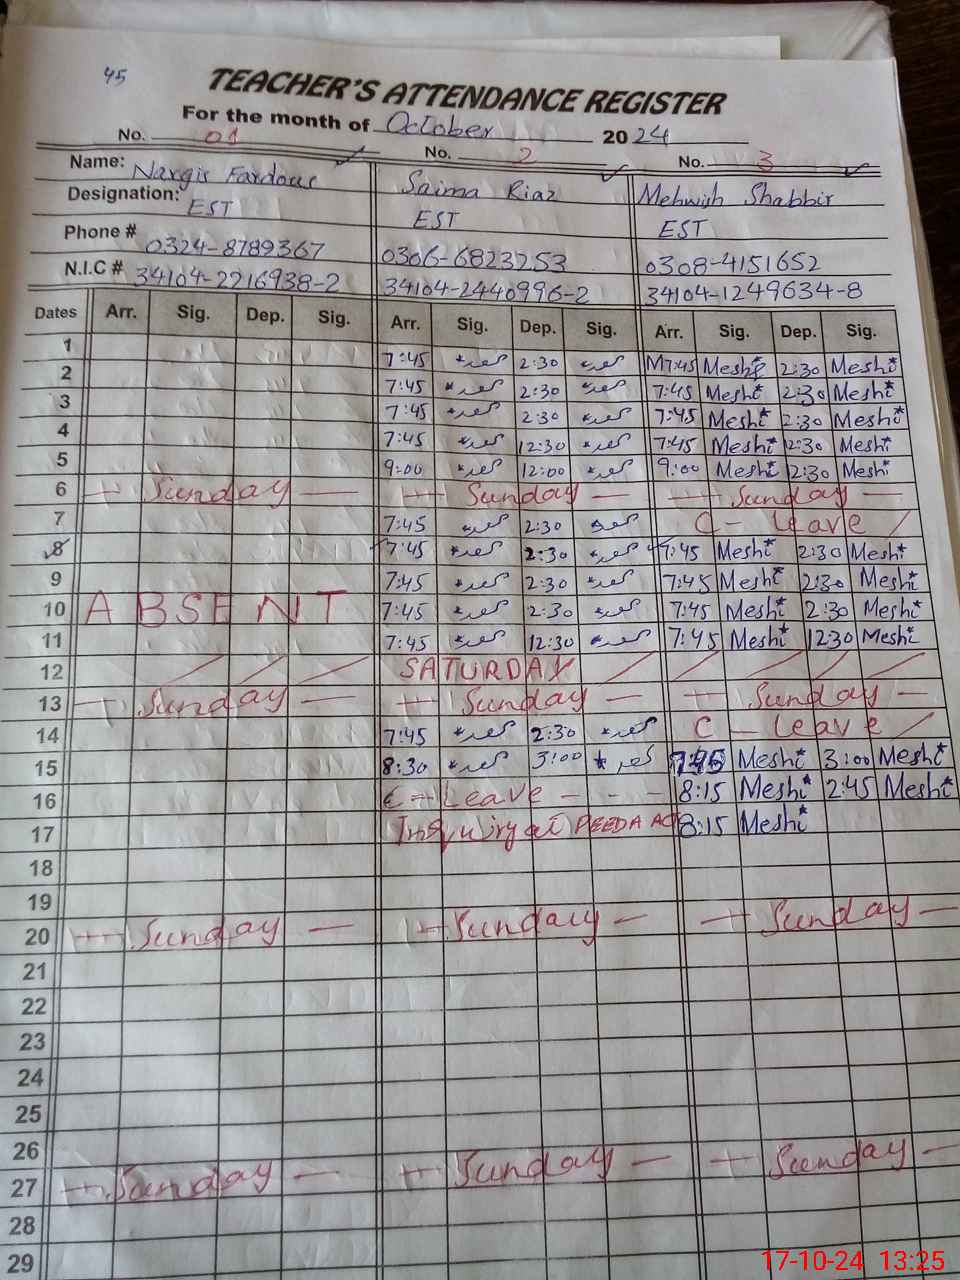 45
TEACHER'S ATTENDANCE REGISTER
For the month of October 2024
No. 01 No. 2 No. 3
Name: Nargis Fardous Saima Riaz Mehwish Shabbir
Designation: EST EST EST
Phone # 0324-8789367 0306-6823253 0308-4151652
N.I.C # 34104-2216938-2 34104-2440996-2 34104-1249634-8
Dates Arr. Sig. Dep. Sig. Arr. Sig. Dep. Sig. Arr. Sig. Dep. Sig.
1 7:45 2:30 M7:45 Meshi* 2:30 Meshi*
2 7:45 2:30 7:45 Meshi* 2:30 Meshi*
3 7:45 2:30 7:45 Meshi* 2:30 Meshi*
4 7:45 12:30 7:45 Meshi* 12:30 Meshi*
5 9:00 12:00 9:00 Meshi* 12:30 Meshi*
6 Sunday Sunday Sunday
7 7:45 2:30 C - Leave
8 7:45 2:30 7:45 Meshi* 2:30 Meshi*
9 7:45 2:30 7:45 Meshi* 2:30 Meshi*
10 ABSENT 7:45 2:30 7:45 Meshi* 2:30 Meshi*
11 7:45 12:30 7:45 Meshi* 12:30 Meshi*
12 SATURDAY
13 Sunday Sunday Sunday
14 7:45 2:30 C - Leave
15 8:30 3:00 7:45 Meshi* 3:00 Meshi*
16 C - Leave - - - 8:15 Meshi* 2:45 Meshi*
17 PEEDA 8:15 Meshi*
18
19
20 Sunday Sunday Sunday
21
22
23
24
25
26
27 Sunday Sunday Sunday
28
29
17-10-24 13:25